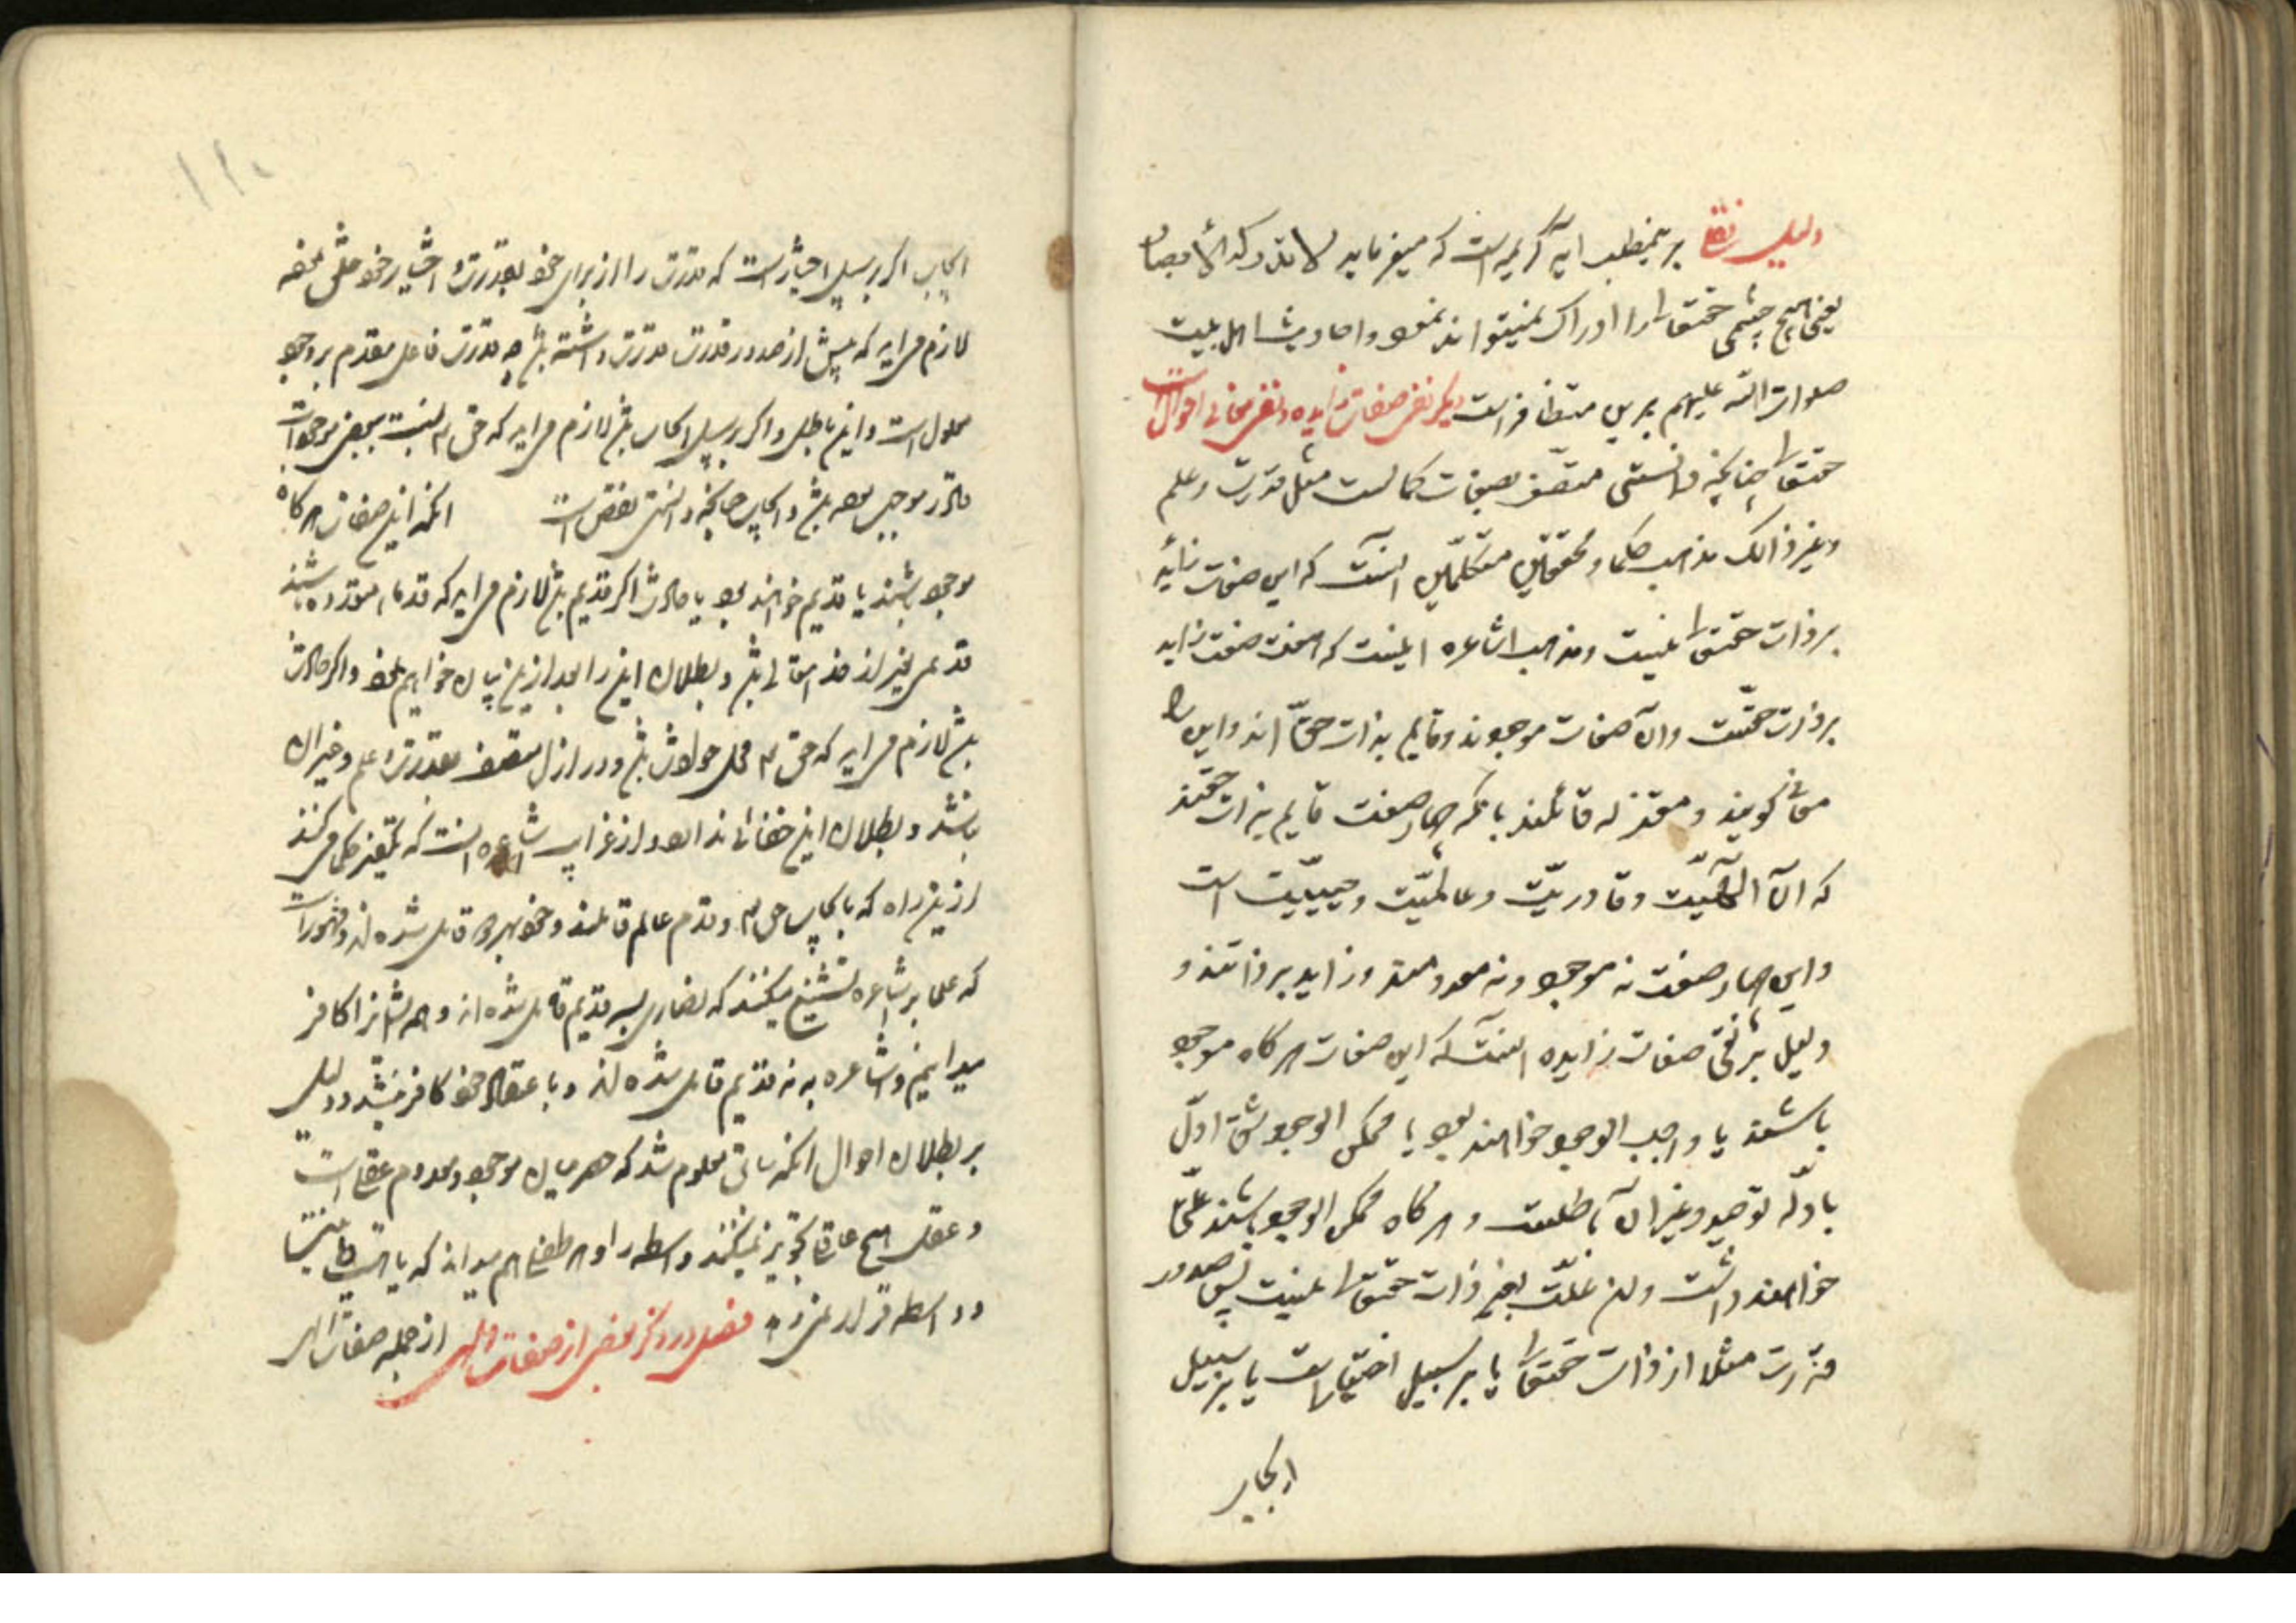 دلیل نقلی بر این مطلب آیه کریمه است که میفرماید لا تدرکه الأبصار
یعنی هیچ چشمی حقتعالی را ادراک نمیتواند نمود و احادیث اهل بیت
صلوات الله علیهم برین متظافر است دیگر نفی صفات زایده و نفی معانی و احوالست
حقتعالی چنانچه دانستی متصف بصفات کمالست مثل قدرت و علم
و غیر ذالک مذهب حکما و محققین متکلمین آنست که این صفات زاید
بر ذات حقتعالی نیست و مذهب اشاعره اینست که هفت صفت زاید
بر ذات حقست و آن صفات موجودند و قایم بذات حق اند و این را
معانی گویند و معتزله قائلند بانکه چهار صفت قایم بذات حقند
که آن الهیّت و قادریّت و عالمیّت و حییّت است
و این چهار صفت نه موجود و نه معدومند و زاید بر ذاتند و
دلیل بر نفی صفات زایده آنست که این صفات هر گاه موجود
باشند یا واجب الوجود خواهند بود یا ممکن الوجود شق اوّل
بادلّه توحید و غیر آن باطلست و هر گاه ممکن الوجود باشند علّتی
خواهند داشت و آن علّت بجز ذات حقتعالی نیست پس صدور
قدرت مثلا از ذات حقتعالی یا بر سبیل اختیارست یا بر سبیل
ایجاب
ایجاب اگر بر سبیل اختیارست که قدرت را از برای خود بقدرت و اختیار خود خلق نموده
لازم میاید که پیش از صدور قدرت قدرت داشته باشد چه قدرت فاعل مقدم بر وجود
معلول است و این باطل و اگر بر سبیل ایجاب باشد لازم میاید که حق تعالی نسبت ببعض موجودات
قادر موجب بوده باشد و ایجاب چنانچه دانستی نقص است آنکه این صفات هر گاه
موجود باشند یا قدیم خواهند بود یا حادث اگر قدیم باشد لازم میاید که قدماء متعدده باشند
قدیمی بغیر از خدایتعالی باشد و بطلان این را بعد ازین بیان خواهیم نمود و اگر حادث
باشد لازم میاید که حق تعالی محل حوادث باشد و در ازل متصف بقدرت و علم و غیر آن
نباشد و بطلان این خفائی ندارد و از غرایب اشاعره اینست که تکفیر حکما میکنند
ازین راه که بایجاب حق تعالی و قدم عالم قائلند و خود بهر دو قایل شده اند و مشهورست
که علما بر اشاعره تشنیع میکنند که نصاری بسه قدیم قایل شده اند و همه ایشانرا کافر
میدانیم و اشاعره به نه قدیم قایل شده اند و باعتقاد خود کافر نیستند و دلیل
بر بطلان احوال آنکه سابق معلوم شد که حصر میان موجود و معدوم عقلی است
و عقل هیچ عاقل تجویز نمیکند واسطه را و هر طفلی هم میداند که یا هست یا نیست
و واسطه قرار نمی دهد فصل در ذکر بعضی از صفات الهی از جمله صفات الهی